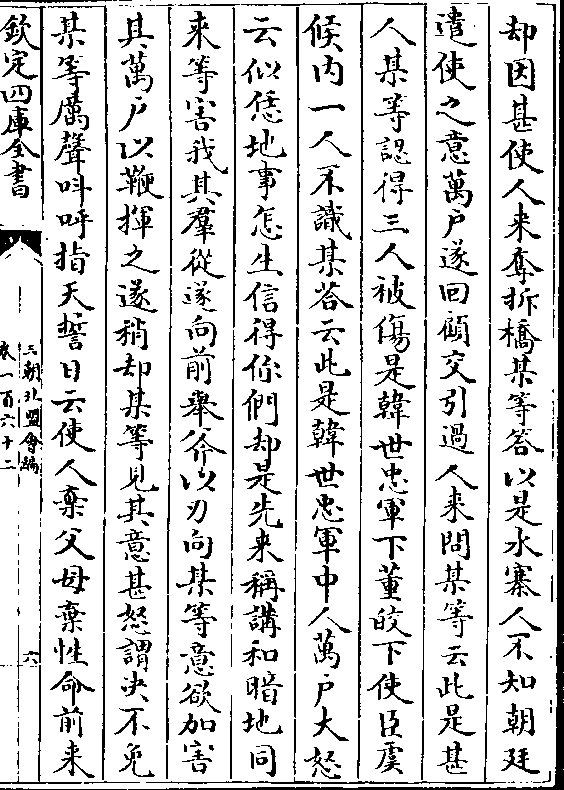 却因甚使人来奪拆橋某等答以是水寨人不知朝廷
遣使之意萬户遂回顧交引過人来問某等云此是甚
人某等認得三人被傷是韓世忠軍下董皎下使臣虞
候内一人不識某答云此是韓世忠軍中人萬户大怒
云似恁地事怎生信得你們却是先来稱講和暗地同
来等害我其羣從遂向前舉斧以刃向某等意欲加害
其萬户以鞭揮之遂稍却某等見其意甚怒謂决不免
某等厲聲叫呼指天誓日云使人棄父母棄性命前来
欽定四庫全書
三朝北盟會編
卷一百六十二
六